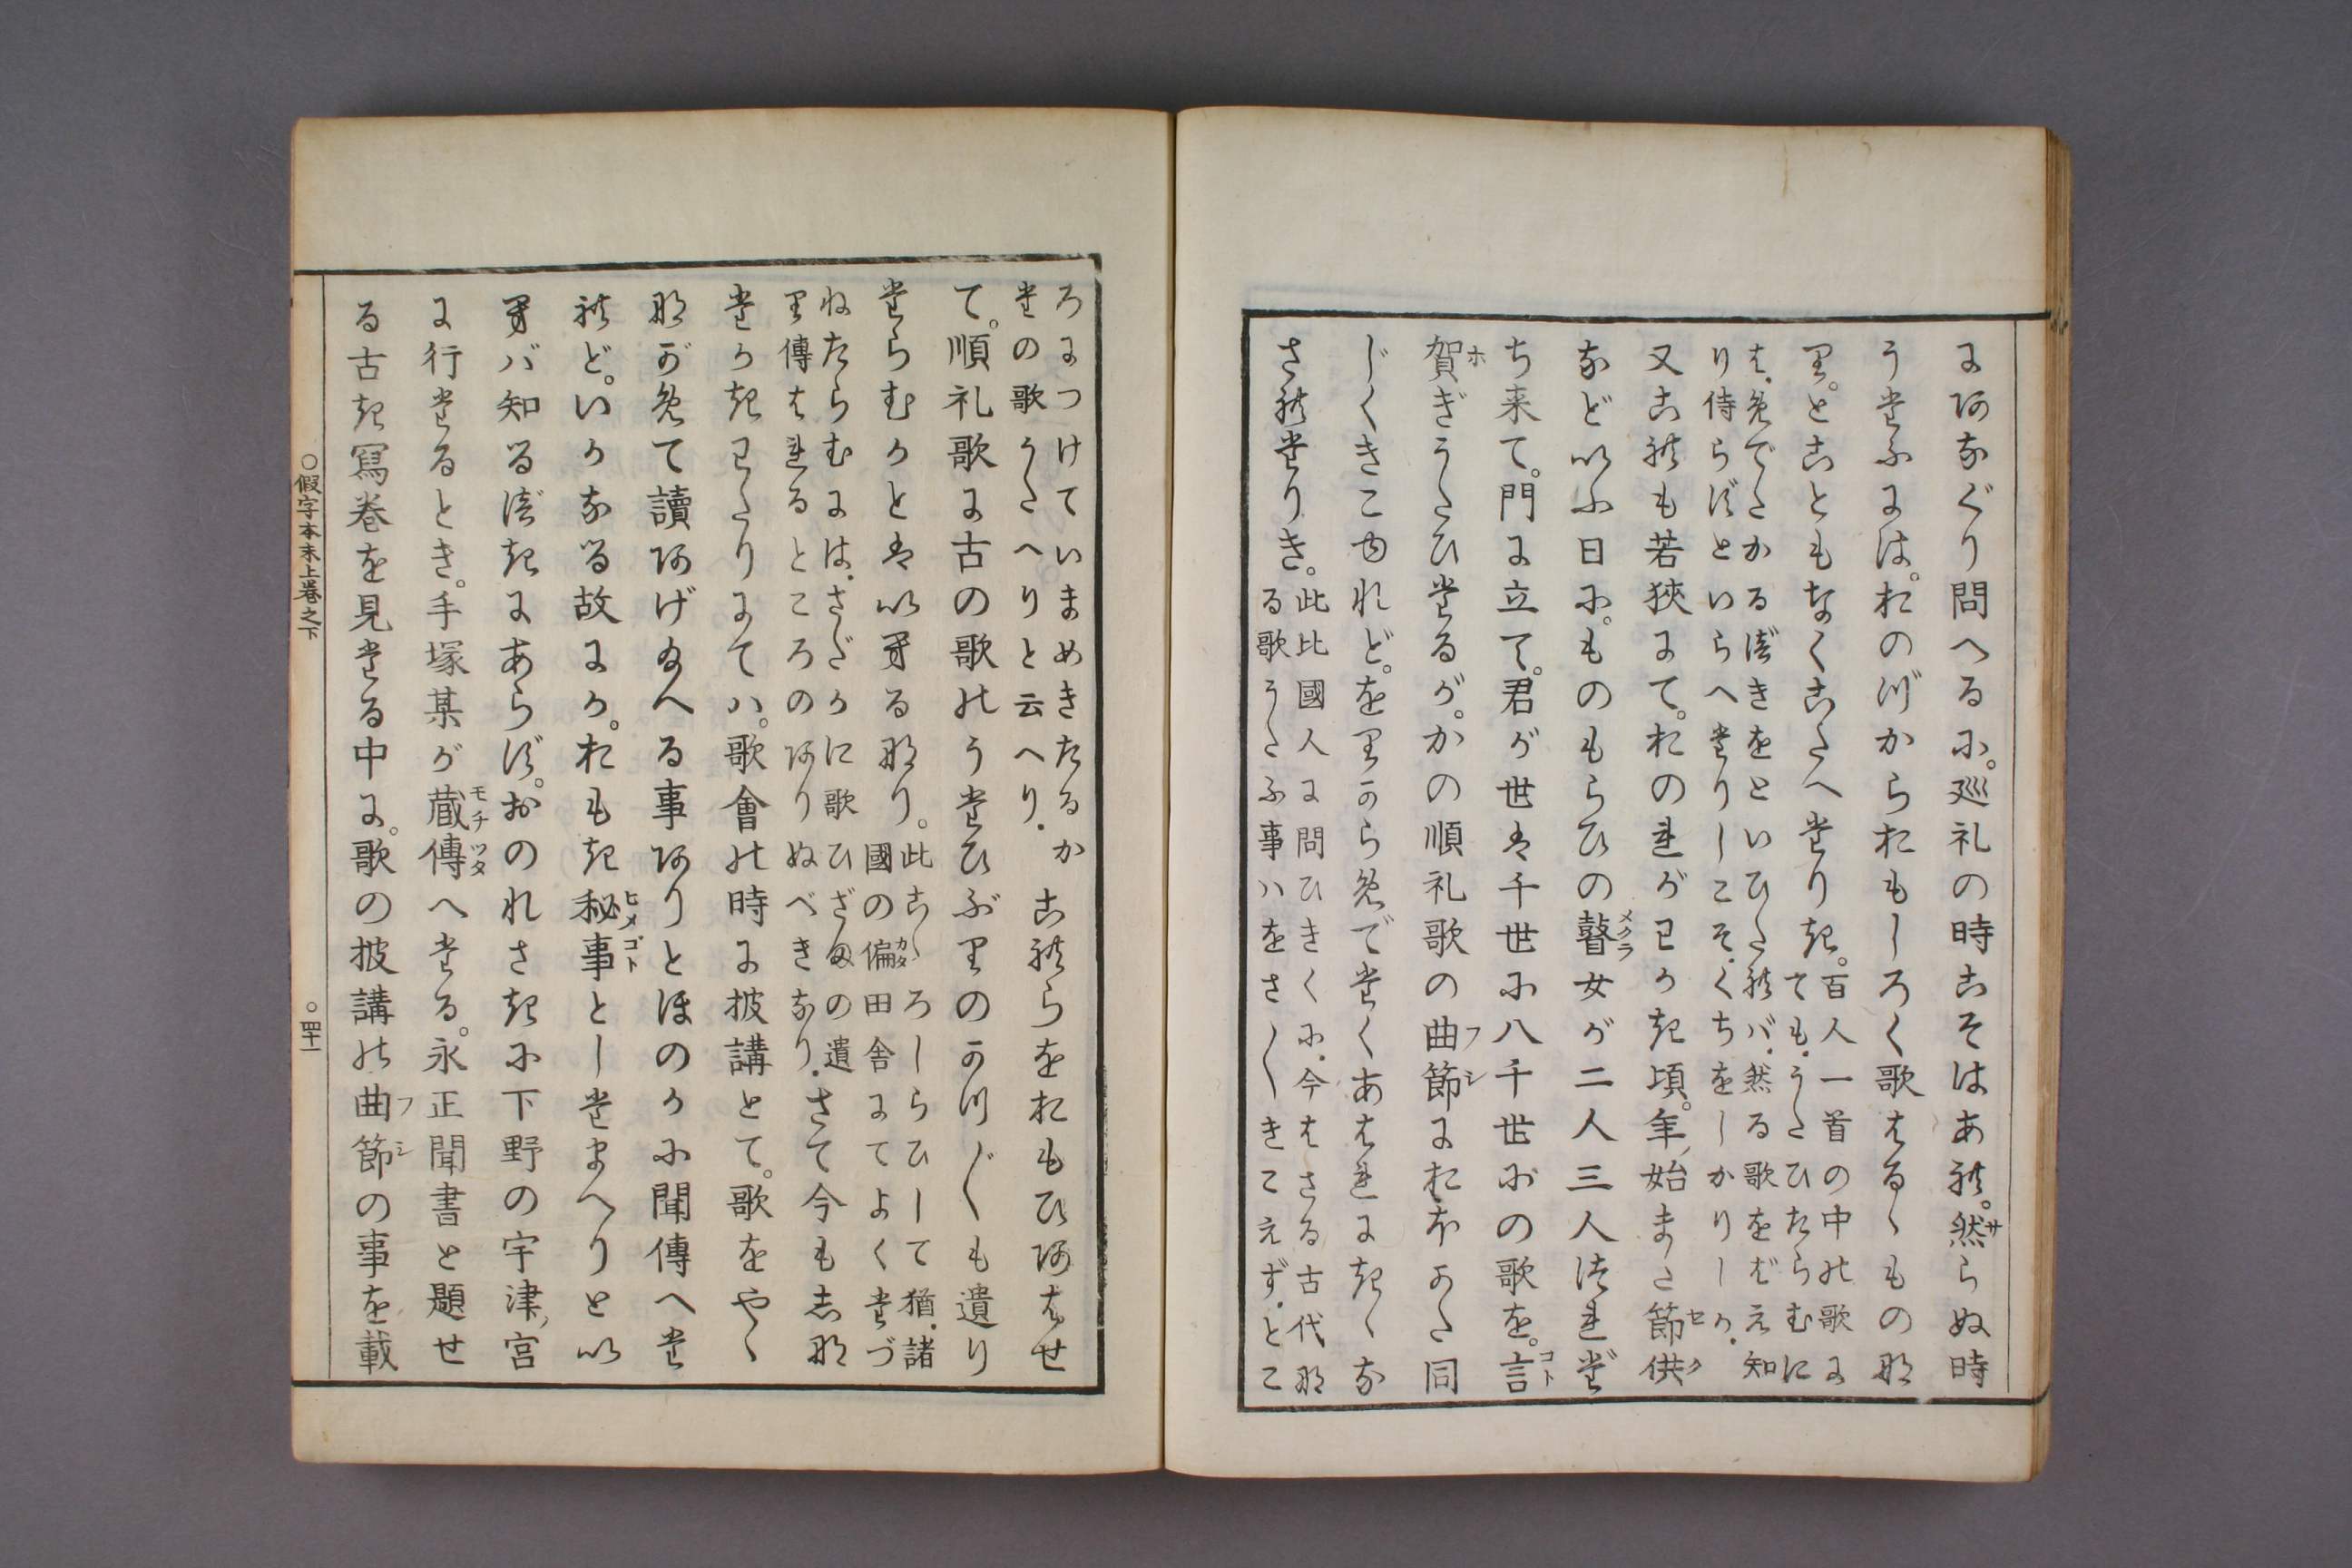 にあながり問へるに。廵礼の時こそはあれ。然らぬ時
うたふには。おのづからおもしろく歌はるゝものな
り。とこともなくこたへたりき。百人一首の中の歌に
ても.うたひたらむに
は.めでたかるべきをといひたれバ.然る歌をばえ知
り侍らずといらへたりしこそ.くちをしかりしか.
又これも若狹にて。おのれがわかき頃。年ノ始また節供
など以ふ日に。ものもらひの瞽女が二人三人つれだ
ち来て。門に立て。君が世は千世に八千世にの歌を。言
賀ぎうたひたるが。かの順礼歌の曲節におほかた同
じくきこゆれど。をりからめでたくあはれにきゝな
されたりき。此比國人に問ひきくに.今はさる古代な
る歌うたふ事ハをさ〳〵きこえず.とこ
ろにつけていまめきたるか
たの歌うたへりと云へり. これらをおもひあはせ
て。順礼歌に古の歌のうたひぶりのかつ〴〵も遺り
たらむかとは以へるなり。此こゝろしらひして猶.諸
國の偏田舎にてよくたづ
ねたらむには.さだかに歌ひざまの遺
り傳はれるところのありぬべきなり. さて今も志な
たかきわたりにてハ。歌會の時に披講とて。歌をやゝ
ながめて讀あげ給へる事ありとほのかに聞傳へた
れど。いかなる故にか。おもき秘事としたまへりと以
へバ知るべきにあらず。おのれさきに下野の宇津ノ宮
に行たるとき。手塚某が蔵傳へたる。永正聞書と題せ
る古き寫巻を見たる中に。歌の披講の曲節の事を載
○假字本末上巻之下
○四十一